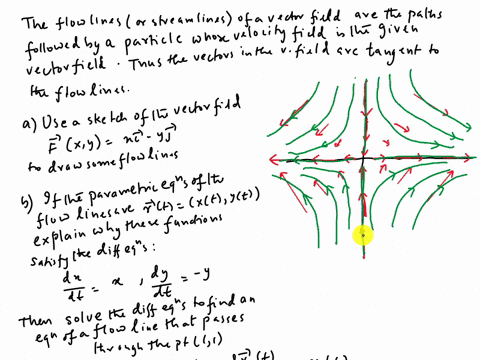 The flow lines (or streamlines) of a vector field are the paths
followed by a particle whose velocity field is the given
vector field. Thus the vectors in the v. field are tangent to
the flow lines.
a) Use a sketch of the vector field
F⃗(x,y) = xi⃗ - yj⃗
to draw some flow lines
b) If the parametric eqⁿs of the
flow lines are r⃗(t) = (x(t), y(t))
explain why these functions
satisfy the diff eqⁿs:
dx/dt = x , dy/dt = -y
Then solve the diff eqⁿs to find an
eqⁿ of a flow line that passes
through the pt (1,1)